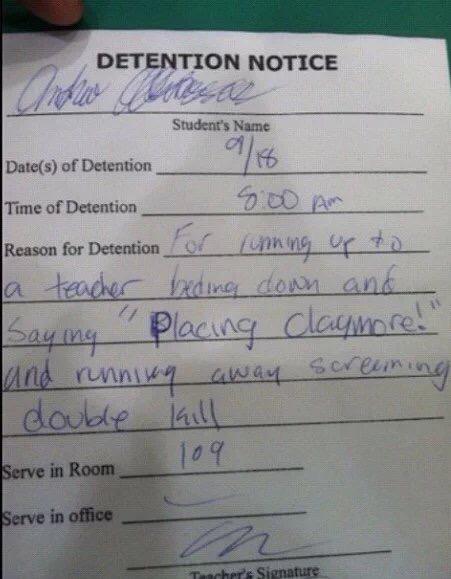 DETENTION NOTICE
Andrew
Student's Name
Date(s) of Detention 9/18
Time of Detention 8:00 AM
Reason for Detention For running up to
a teacher beding down and
saying "Placing Claymore!"
and running away screaming
double kill
Serve in Room 109
Serve in office
Teacher's Signature